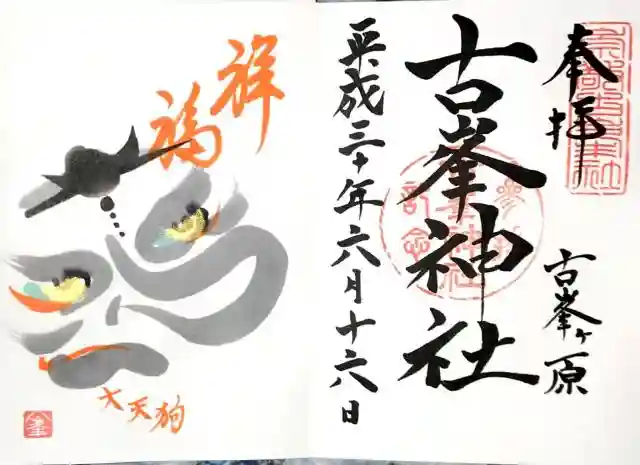 奉拝
古峯ヶ原
古峯神社
平成三十年六月十六日
祥
福
大天狗